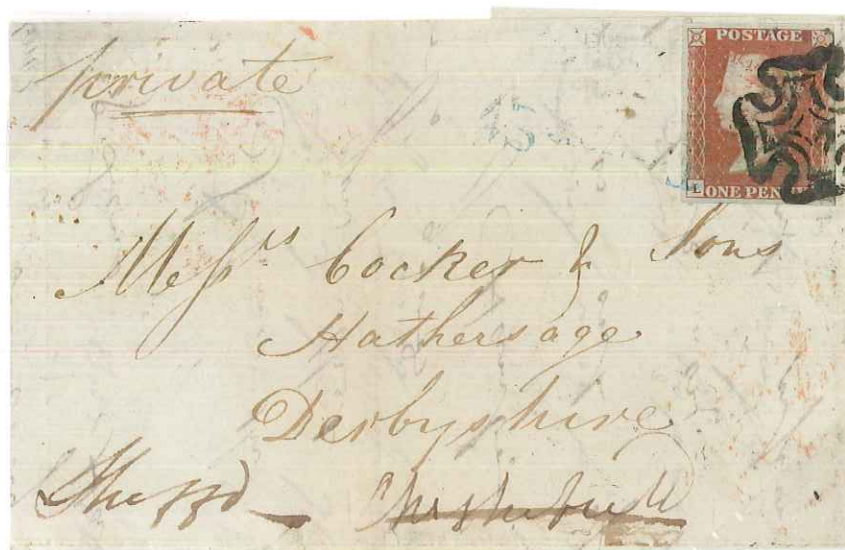 private
POSTAGE
L ONE PENNY
Messrs Cocker & Sons
Hathersage
Derbyshire
Sheffd Chesterfield